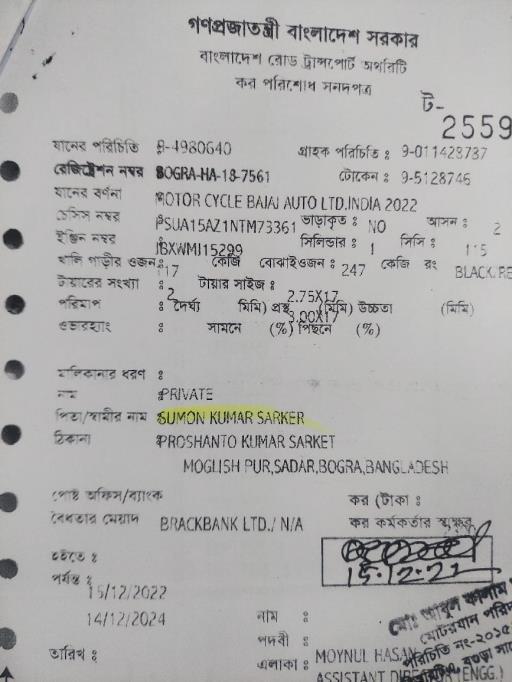 গণপ্রজাতন্ত্রী বাংলাদেশ সরকার
বাংলাদেশ রোড ট্রান্সপোর্ট অথরিটি
কর পরিশোধ সনদপত্র
ট-
2559
যানের পরিচিতি : 9-4980640 গ্রাহক পরিচিতি : 9-011423737
রেজিষ্ট্রেশন নম্বর : BOGRA-HA-18-7561 টোকেন : 9-5128746
যানের বর্ণনা MOTOR CYCLE BAJAJ AUTO LTD.INDIA 2022
চেসিস নম্বর PSUA15AZ1NTM73361 ভাড়াকৃত : NO আসন : 2
ইঞ্জিন নম্বর JBXWMJ15299 সিলিন্ডার : 1 সিসি : 115
খালি গাড়ীর ওজন : 117 কেজি বোঝাইওজন : 247 কেজি রং BLACK.RE
টায়ারের সংখ্যা : 2 টায়ার সাইজ : 2.75X17
পরিমাপ : দৈর্ঘ্য মিমি) প্রস্থ (মিমি) উচ্চতা (মিমি)
3.00X17
ওভারহ্যাং : সামনে (%) পিছনে (%)
মালিকানার ধরণ :
নাম :PRIVATE
পিতা/স্বামীর নাম :SUMON KUMAR SARKER
ঠিকানা :PROSHANTO KUMAR SARKET
MOGLISH PUR,SADAR,BOGRA,BANGLADESH
পোষ্ট অফিস/ব্যাংক কর (টাকা :
বৈধতার মেয়াদ BRACKBANK LTD./ N/A কর কর্মকর্তার স্বাক্ষর
হইতে :
পর্যন্ত :
15/12/2022
15.12.22
14/12/2024 নাম :
পদবী :
তারিখ : এলাকা : MOYNUL HASAN
ASSISTANT DIRECTOR (ENGG.)
মোঃ আবুল কালাম
মোটরযান পরিদ
পরিচিতি নং-২০১৫